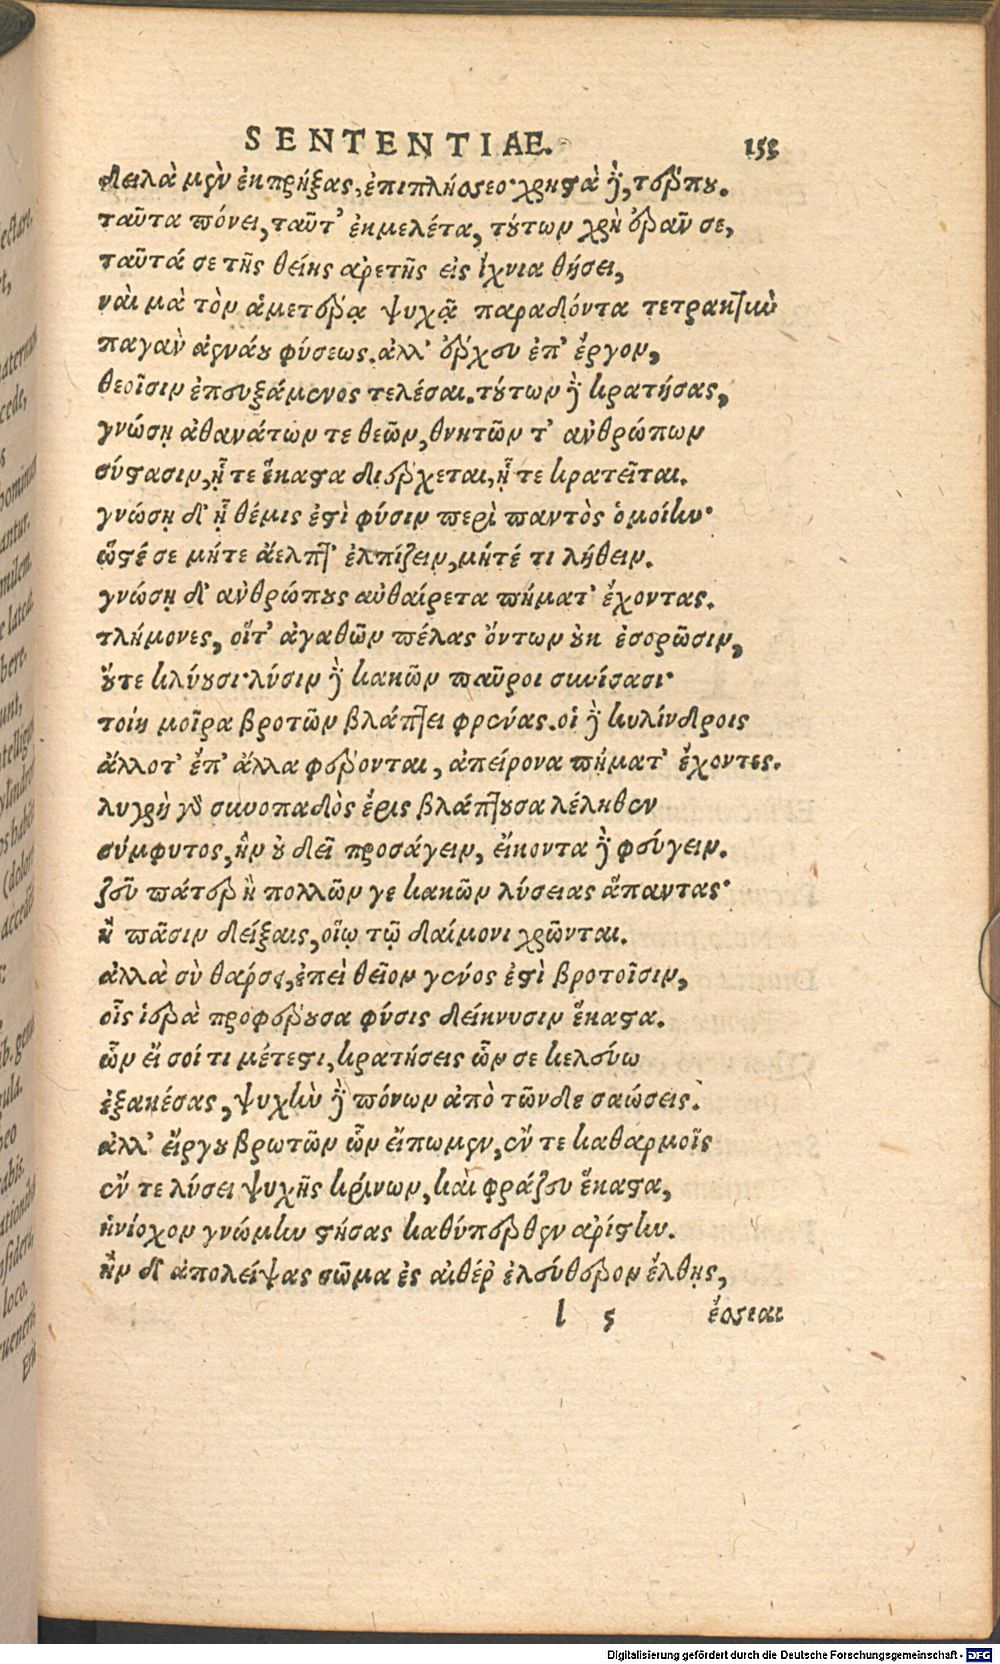 SENTENTIAE. 155
δειλὰ μὲν ἐκπρήξας, ἐπιπλήσσεο· χρηστὰ δὲ, τέρπου.
ταῦτα πόνει, ταῦτ' ἐκμελέτα, τούτων χρὴ ἐρᾶν σε,
ταῦτά σε τῆς θείης ἀρετῆς εἰς ἴχνια θήσει,
ναὶ μὰ τὸν ἁμετέρᾳ ψυχᾷ παραδόντα τετρακτὺν
παγὰν ἀενάου φύσεως. ἀλλ' ἔρχευ ἐπ' ἔργον,
θεοῖσιν ἐπευξάμενος τελέσαι. τούτων δὲ κρατήσας,
γνώσῃ ἀθανάτων τε θεῶν, θνητῶν τ' ἀνθρώπων
σύστασιν, ᾗ τε ἕκαστα διέρχεται, ᾗ τε κρατεῖται.
γνώσῃ δ' ᾗ θέμις ἐστὶ φύσιν περὶ παντὸς ὁμοίην·
ὥστέ σε μήτε ἄελπτ' ἐλπίζειν, μήτέ τι λήθειν.
γνώσῃ δ' ἀνθρώπους αὐθαίρετα πήματ' ἔχοντας.
τλήμονες, οἵτ' ἀγαθῶν πέλας ὄντων οὐκ ἐσορῶσιν,
οὔτε κλύουσι· λύσιν δὲ κακῶν παῦροι συνίσασι·
τοίη μοῖρα βροτῶν βλάπτει φρένας. οἱ δὲ κυλίνδροις
ἄλλοτ' ἐπ' ἄλλα φέρονται, ἀπείρονα πήματ' ἔχοντες.
λυγρὴ γὰρ συνοπαδὸς ἔρις βλάπτουσα λέληθεν
σύμφυτος, ἣν οὐ δεῖ προσάγειν, εἴκοντα δὲ φεύγειν.
ζεῦ πάτερ ἢ πολλῶν γε κακῶν λύσειας ἅπαντας·
ἢ πᾶσιν δείξαις, οἵῳ τῷ δαίμονι χρῶνται.
ἀλλὰ σὺ θάρσει, ἐπεὶ θεῖον γένος ἐστὶ βροτοῖσιν,
οἷς ἱερὰ προφέρουσα φύσις δείκνυσιν ἕκαστα.
ὧν εἴ σοί τι μέτεστι, κρατήσεις ὧν σε κελεύω
ἐξακέσας, ψυχὴν δὲ πόνων ἀπὸ τῶνδε σαώσεις.
ἀλλ' εἴργου βρωτῶν ὧν εἴπωμεν, ἔν τε καθαρμοῖς
ἔν τε λύσει ψυχῆς κρίνων, καὶ φράζευ ἕκαστα,
ἡνίοχον γνώμην στήσας καθύπερθεν ἀρίστην.
ἢν δ' ἀπολείψας σῶμα ἐς αἰθέρ' ἐλεύθερον ἔλθῃς,
l 5 ἔσσεαι
Digitalisierung gefördert durch die Deutsche Forschungsgemeinschaft - DFG